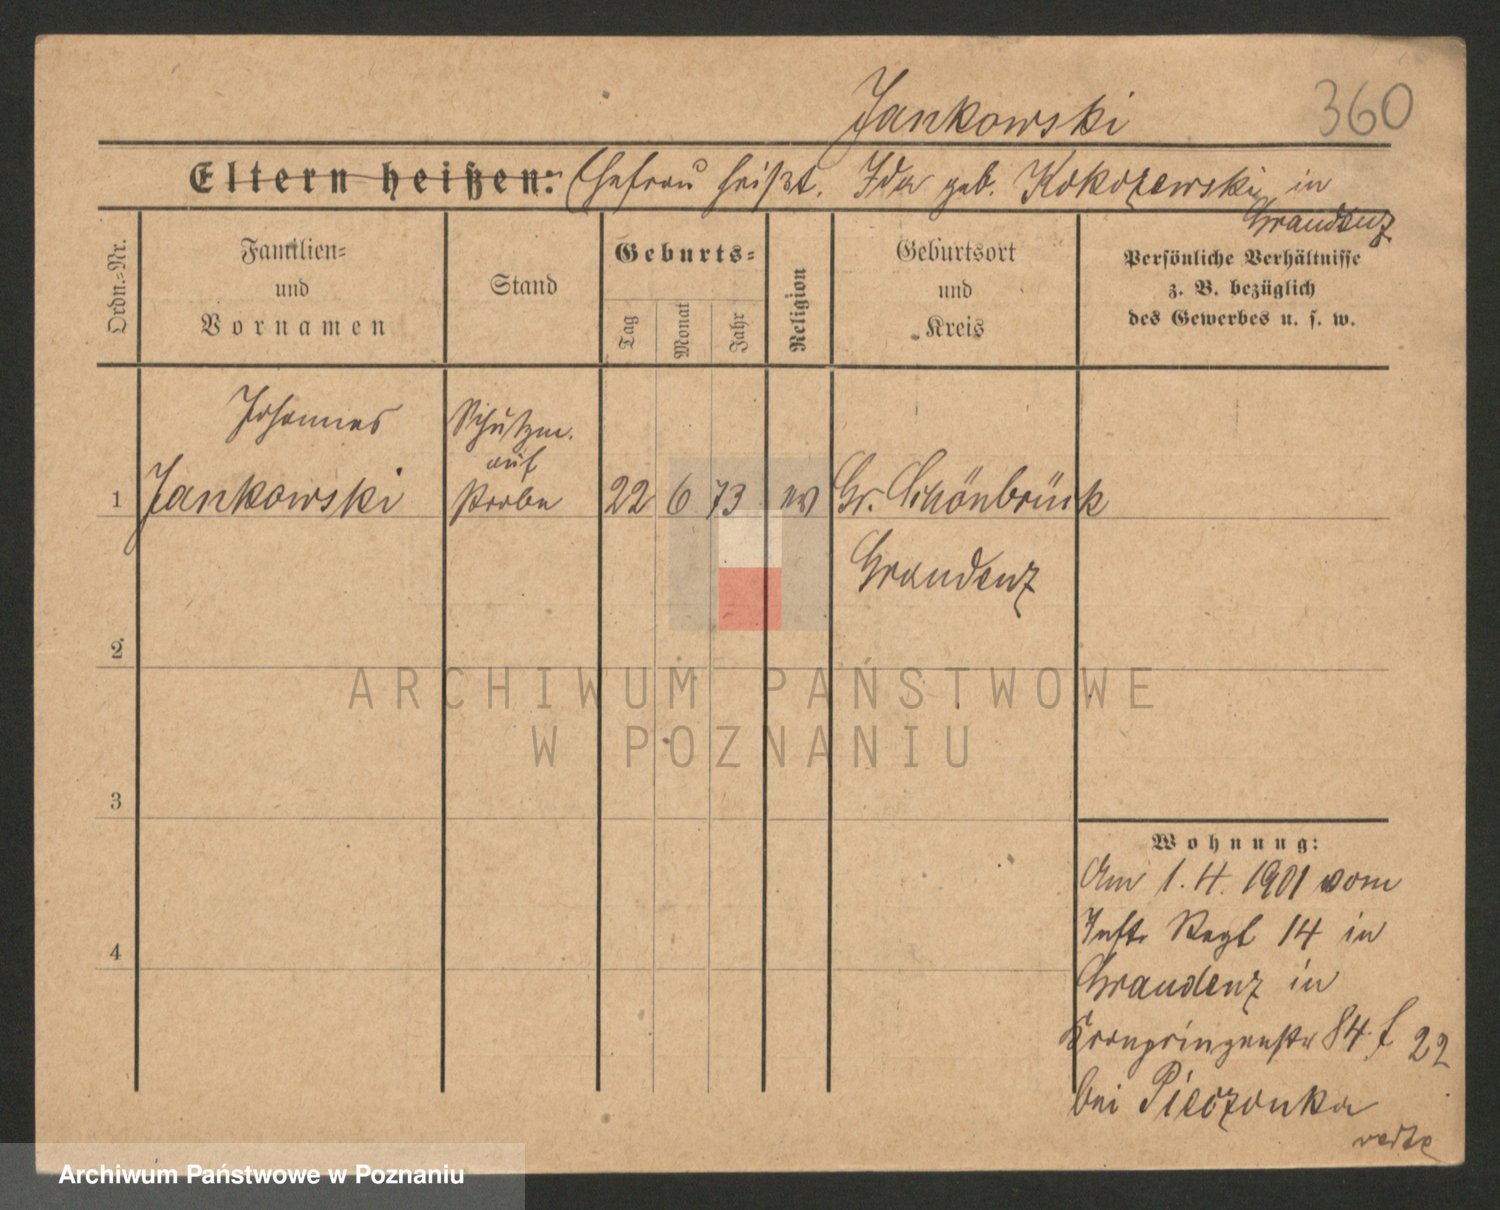 Jankowski 360
Eltern heißen: Ehefrau heißt. Ida geb. Kokozewski in
Graudenz
Ordn.=Nr.
Familien=
und
Vornamen
Stand
Geburts=
Tag
Monat
Jahr
Religion
Geburtsort
und
Kreis
Persönliche Verhältnisse
z. B. bezüglich
des Gewerbes u. s. w.
Johannes
Schutzm.
auf
1 Jankowski Probe 22 6 73 ev Gr. Schönbrück
Graudenz
2
ARCHIWUM PAŃSTWOWE
W POZNANIU
3
Wohnung:
Am 1. 4. 1901 vom
Inft. Regt 14 in
4
Graudenz in
Kronprinzenstr 84 f 22
bei Pieczonka
verte
Archiwum Państwowe w Poznaniu